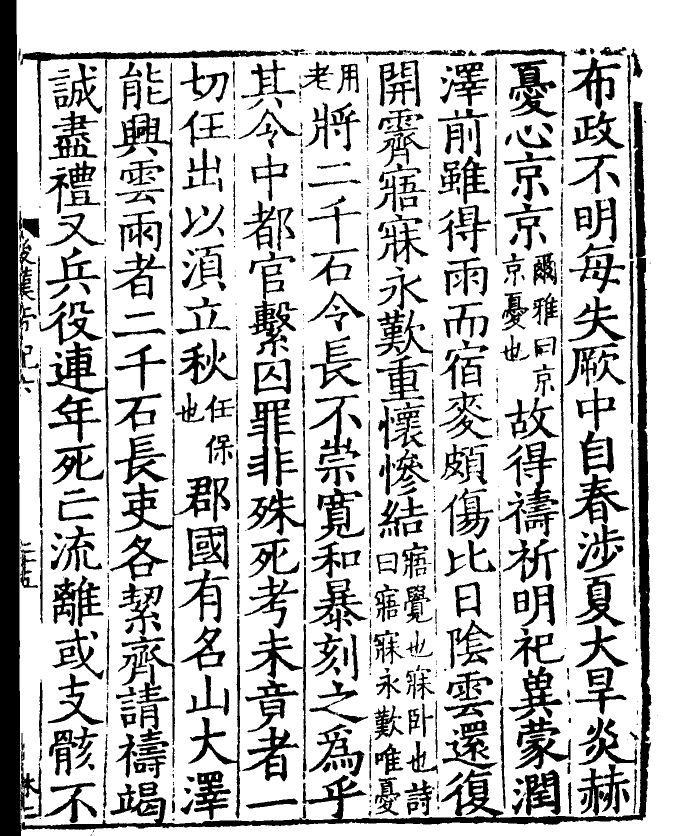 布政不明每失厥中自春涉夏大旱炎赫
憂心京京爾雅曰京京憂也故得禱祈明祀兾蒙潤
澤前雖得雨而宿麥頗傷比日陰雲還復
開霽寤寐永歎重懷慘結寤覺也寐卧也詩曰寤寐永歎唯憂
用老將二千石令長不崇寬和暴刻之爲乎
其令中都官繫囚罪非殊死考未竟者一
切任出以須立秋任保也郡國有名山大澤
能興雲雨者二千石長吏各絜齊請禱竭
誠盡禮又兵役連年死亡流離或支骸不
後漢書紀六